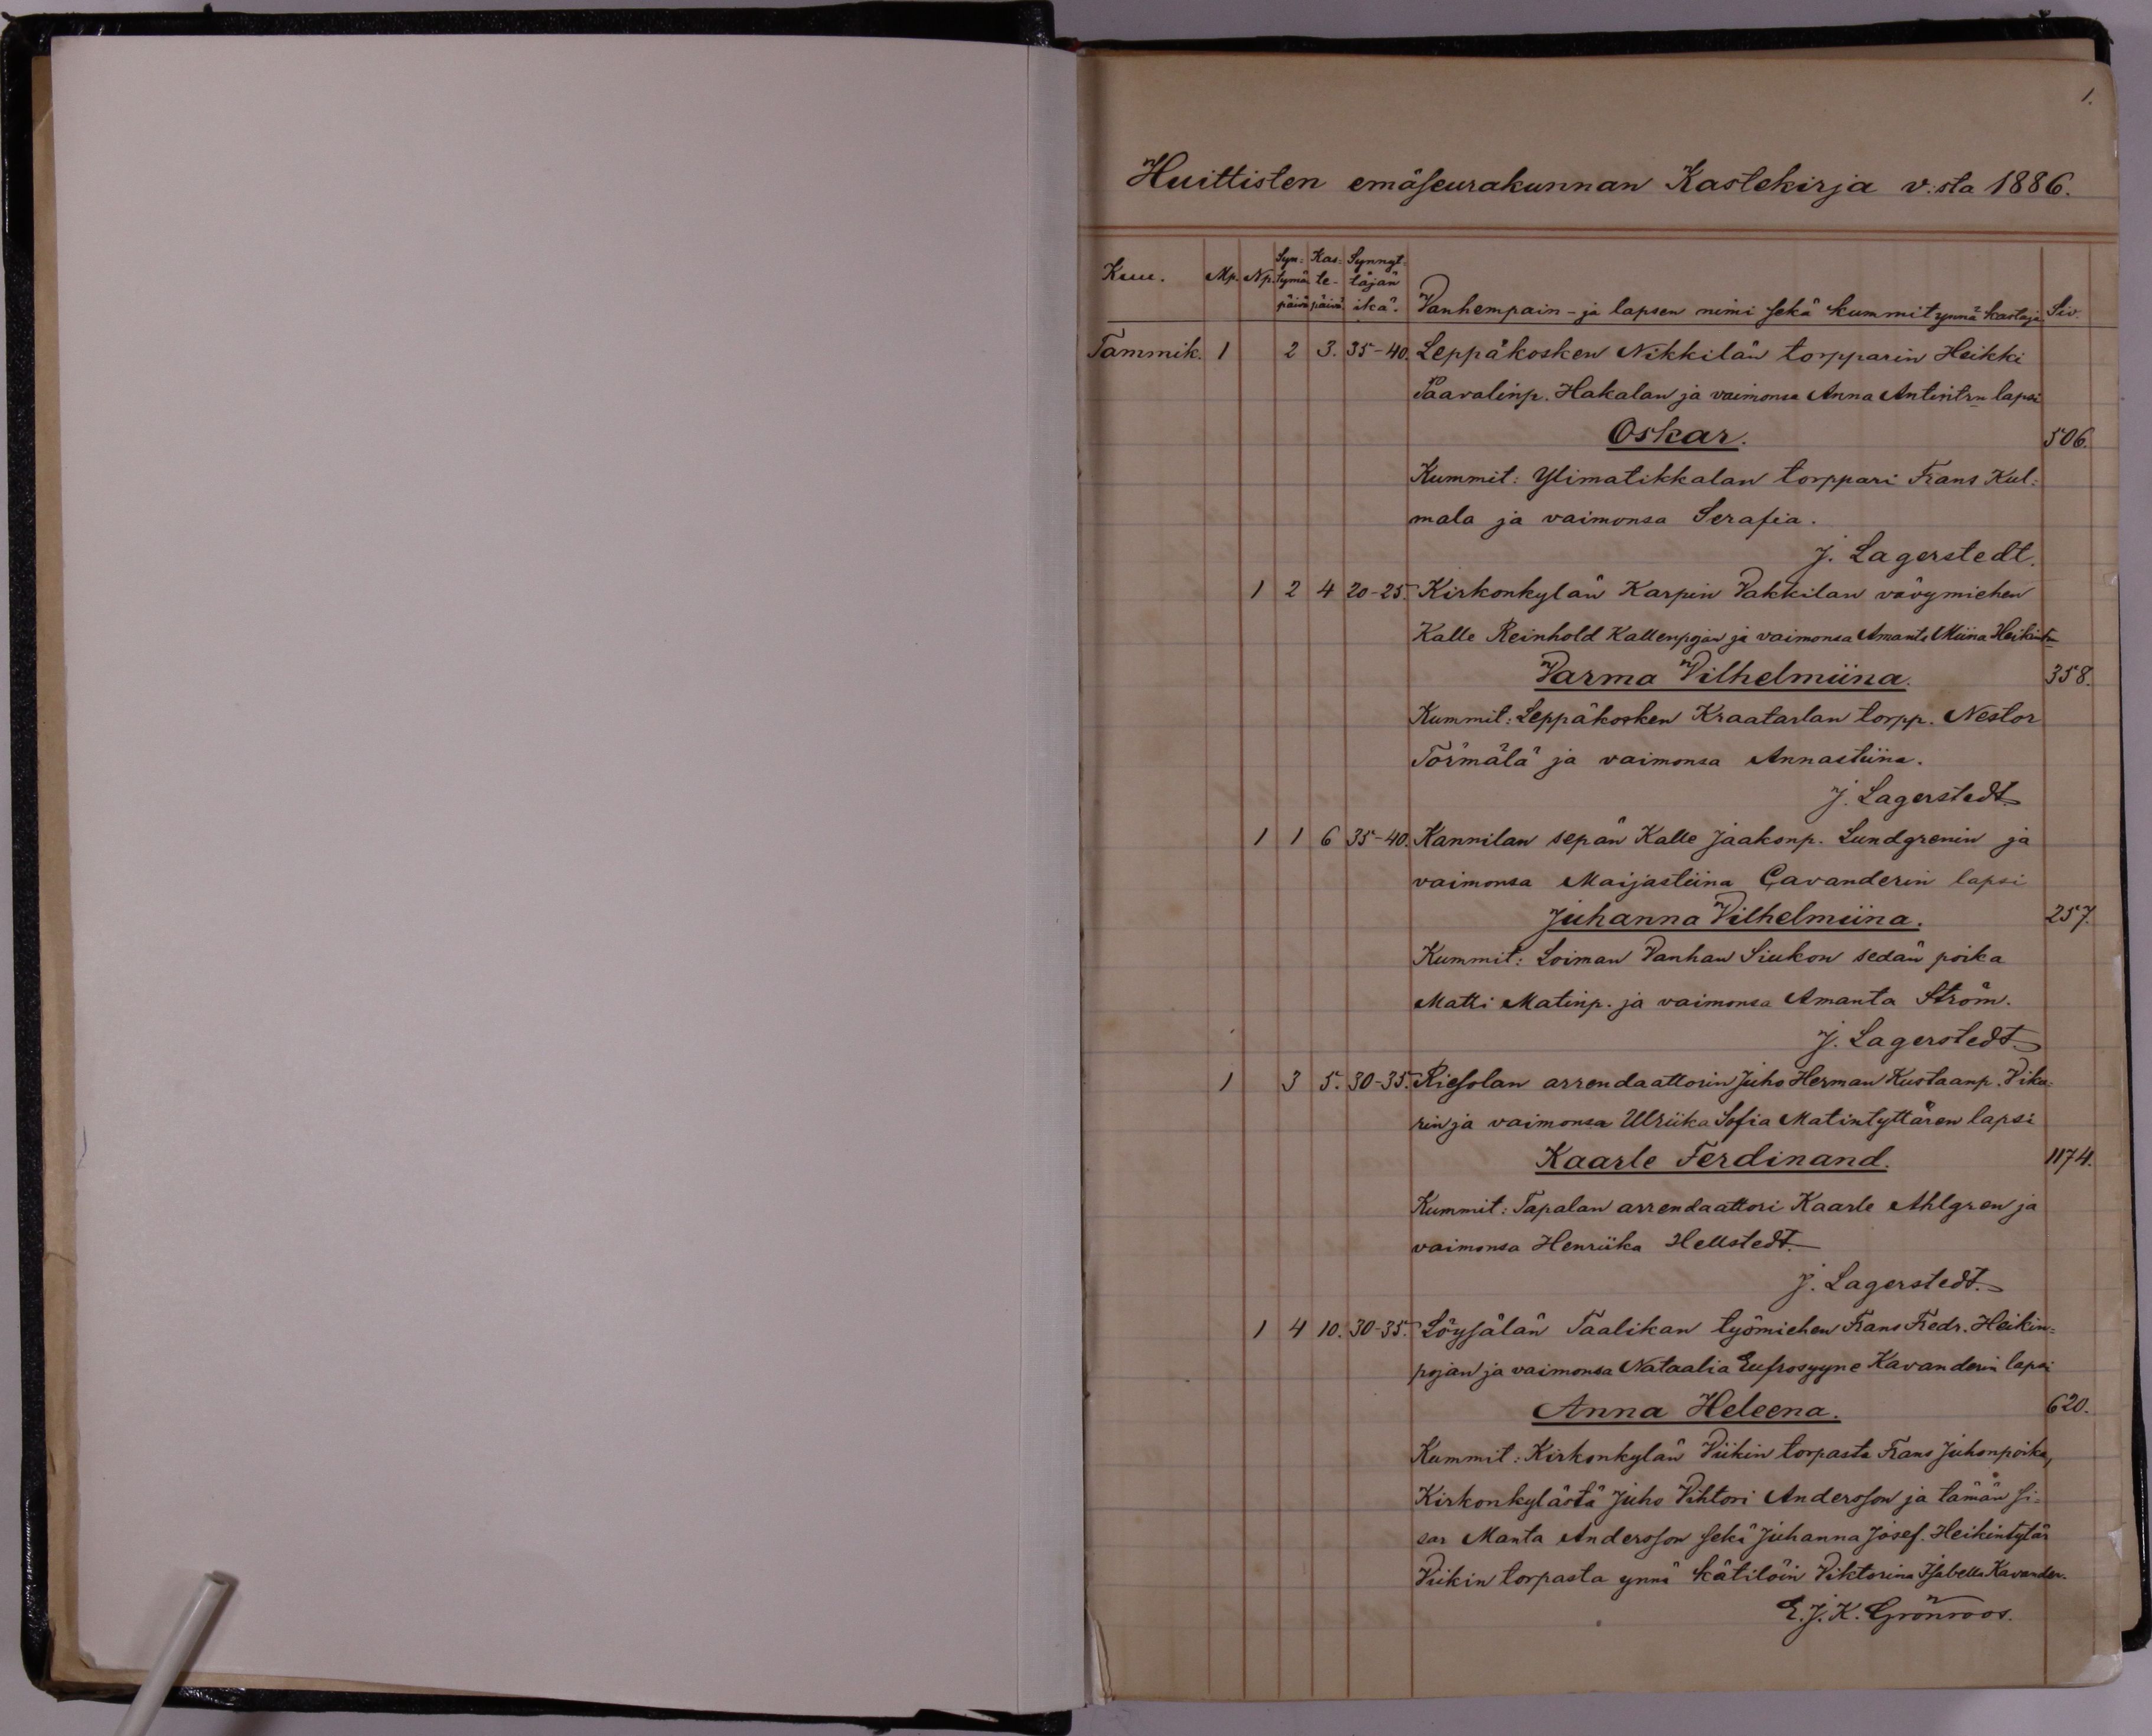 1.
Huittisten emäseurakunnan Kastekirja v:sta 1886.
Kuu. Mp. Np. Syn:tymä päivä Kas:te-päivä Synnyt:täjän ikä. Vanhempain- ja lapsen nimi sekä kummit ynnä kastaja Siv.
Tammik. 1 2 3. 35-40. Leppäkosken Nikkilän torpparin Heikki
Paavalinp. Hakalan ja vaimonsa Anna Antintrn lapsi
Oskar. 506.
Kummit: Ylimatikkalan torppari Frans Kul:
mala ja vaimonsa Serafia.
J. Lagerstedt.
1 2 4 20-25. Kirkonkylän Karpin Vakkilan vävymiehen
Kalle Reinhold Kallenpojan ja vaimonsa Amanta Miina Heikint:
Varma Vilhelmiina. 358.
Kummit: Leppäkosken Kraatarlan torpp. Nestor
Törmälä ja vaimonsa Annastiina.
J. Lagerstedt
1 1 6 35-40. Kannilan sepän Kalle Jaakonp. Lundgrenin ja
vaimonsa Maijastiina Cavanderin lapsi
Juhanna Vilhelmiina. 257.
Kummit: Loiman Vanhan Siukon sedän poika
Matti Matinp. ja vaimonsa Amanta Ström.
J. Lagerstedt
1 3 5. 30-35. Riesolan arrendaattorin Juho Herman Kustaanp. Vika:
rin ja vaimonsa Ulriika Sofia Matintyttären lapsi
Kaarle Ferdinand. 1174.
Kummit: Tapalan arrendaattori Kaarle Ahlgren ja
vaimonsa Henriika Hellstedt.
J. Lagerstedt.
1 4 10. 30-35. Löysälän Taalikan työmiehen Frans Fredr. Heikin=
pojan ja vaimonsa Nataalia Eufrosyyne Kavanderin lapsi
Anna Heleena. 620.
Kummit: Kirkonkylän Viikin torpasta Frans Juhonpoika,
Kirkonkylästä Juho Vihtori Andersson ja tämän si=
sar Manta Andersson sekä Juhanna Josef. Heikintytär
Viikin torpasta ynnä kätilöin Viktorina Isabella Kavander.
E. J. K. Grönroos.